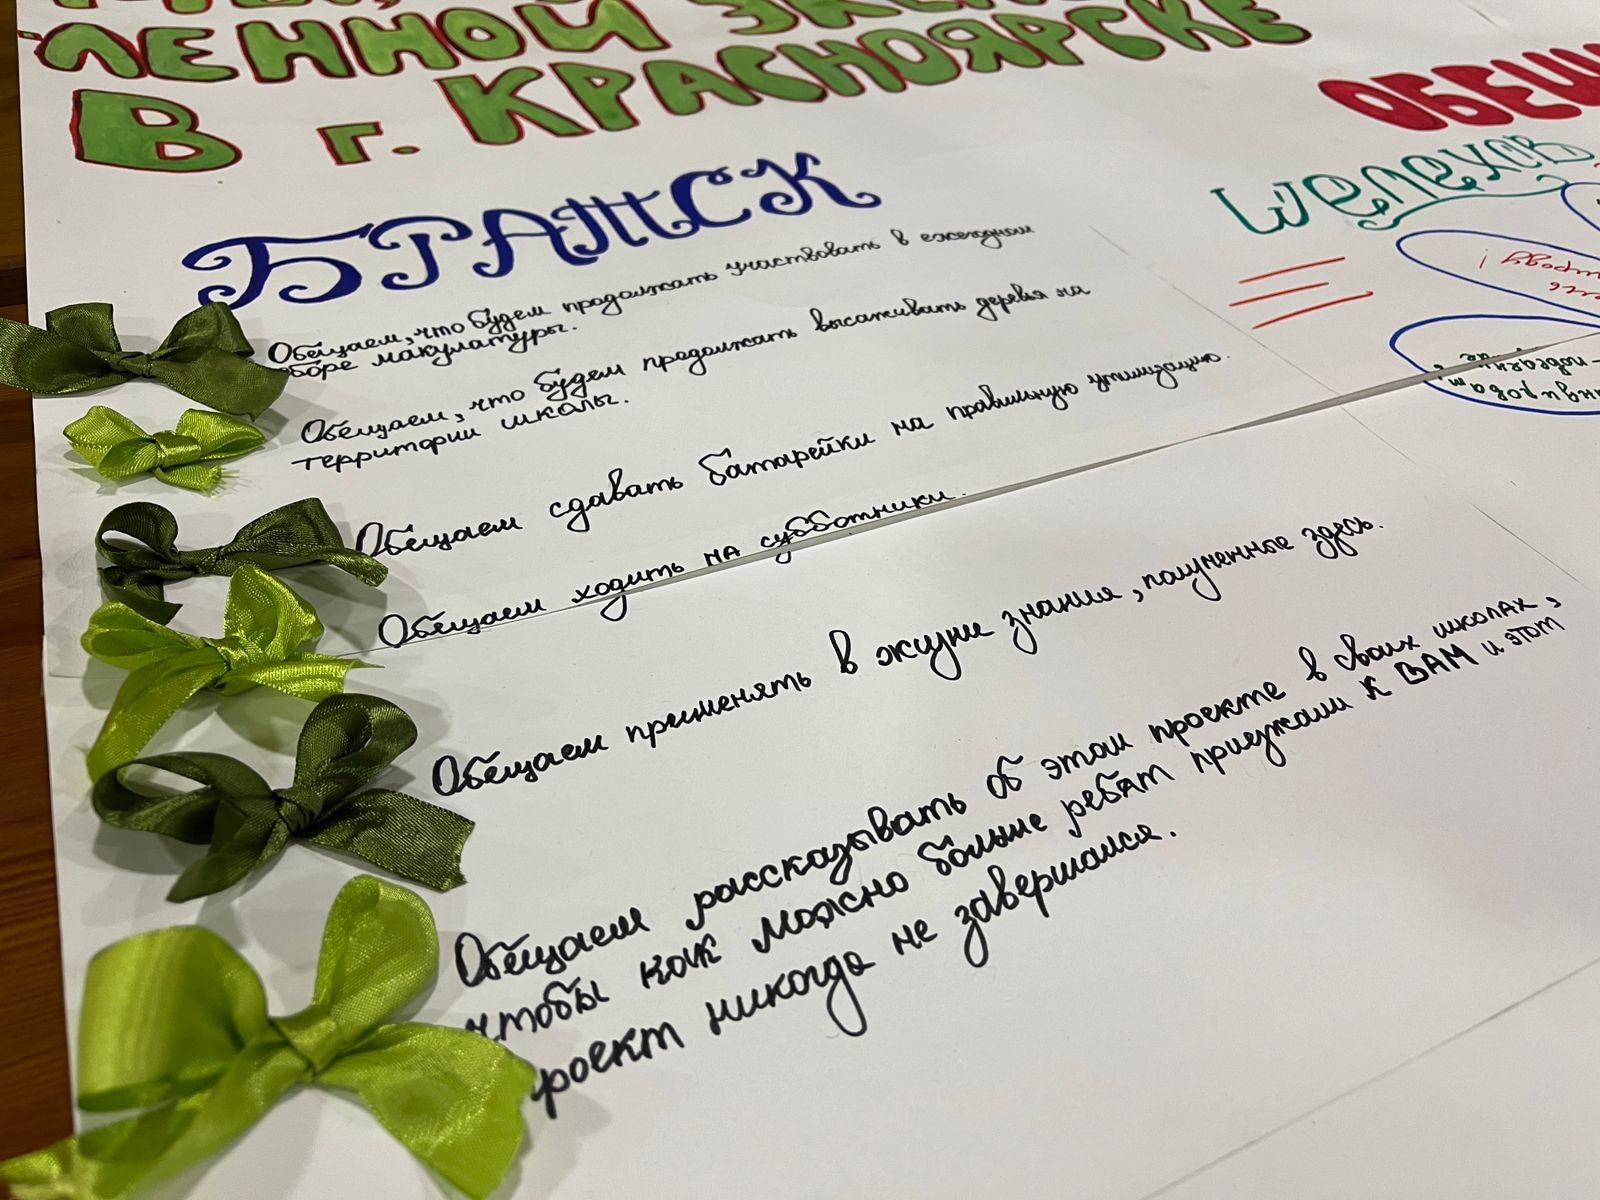 ЛЕННОЙ
В г. КРАСНОЯРСКЕ
БРАТСК
Обещаем, что будем продолжать участвовать в ежегодном
сборе макулатуры.
Обещаем, что будем продолжать высаживать деревья на
территории школы.
Обещаем сдавать батарейки на правильную утилизацию.
Обещаем ходить на субботники.
Обещаем применять в жизни знания, полученные здесь.
Обещаем рассказывать об этом проекте в своих школах,
чтобы как можно больше ребят приезжали к ВАМ и этот
проект никогда не завершался.
ОБЕЩ
Шелехов